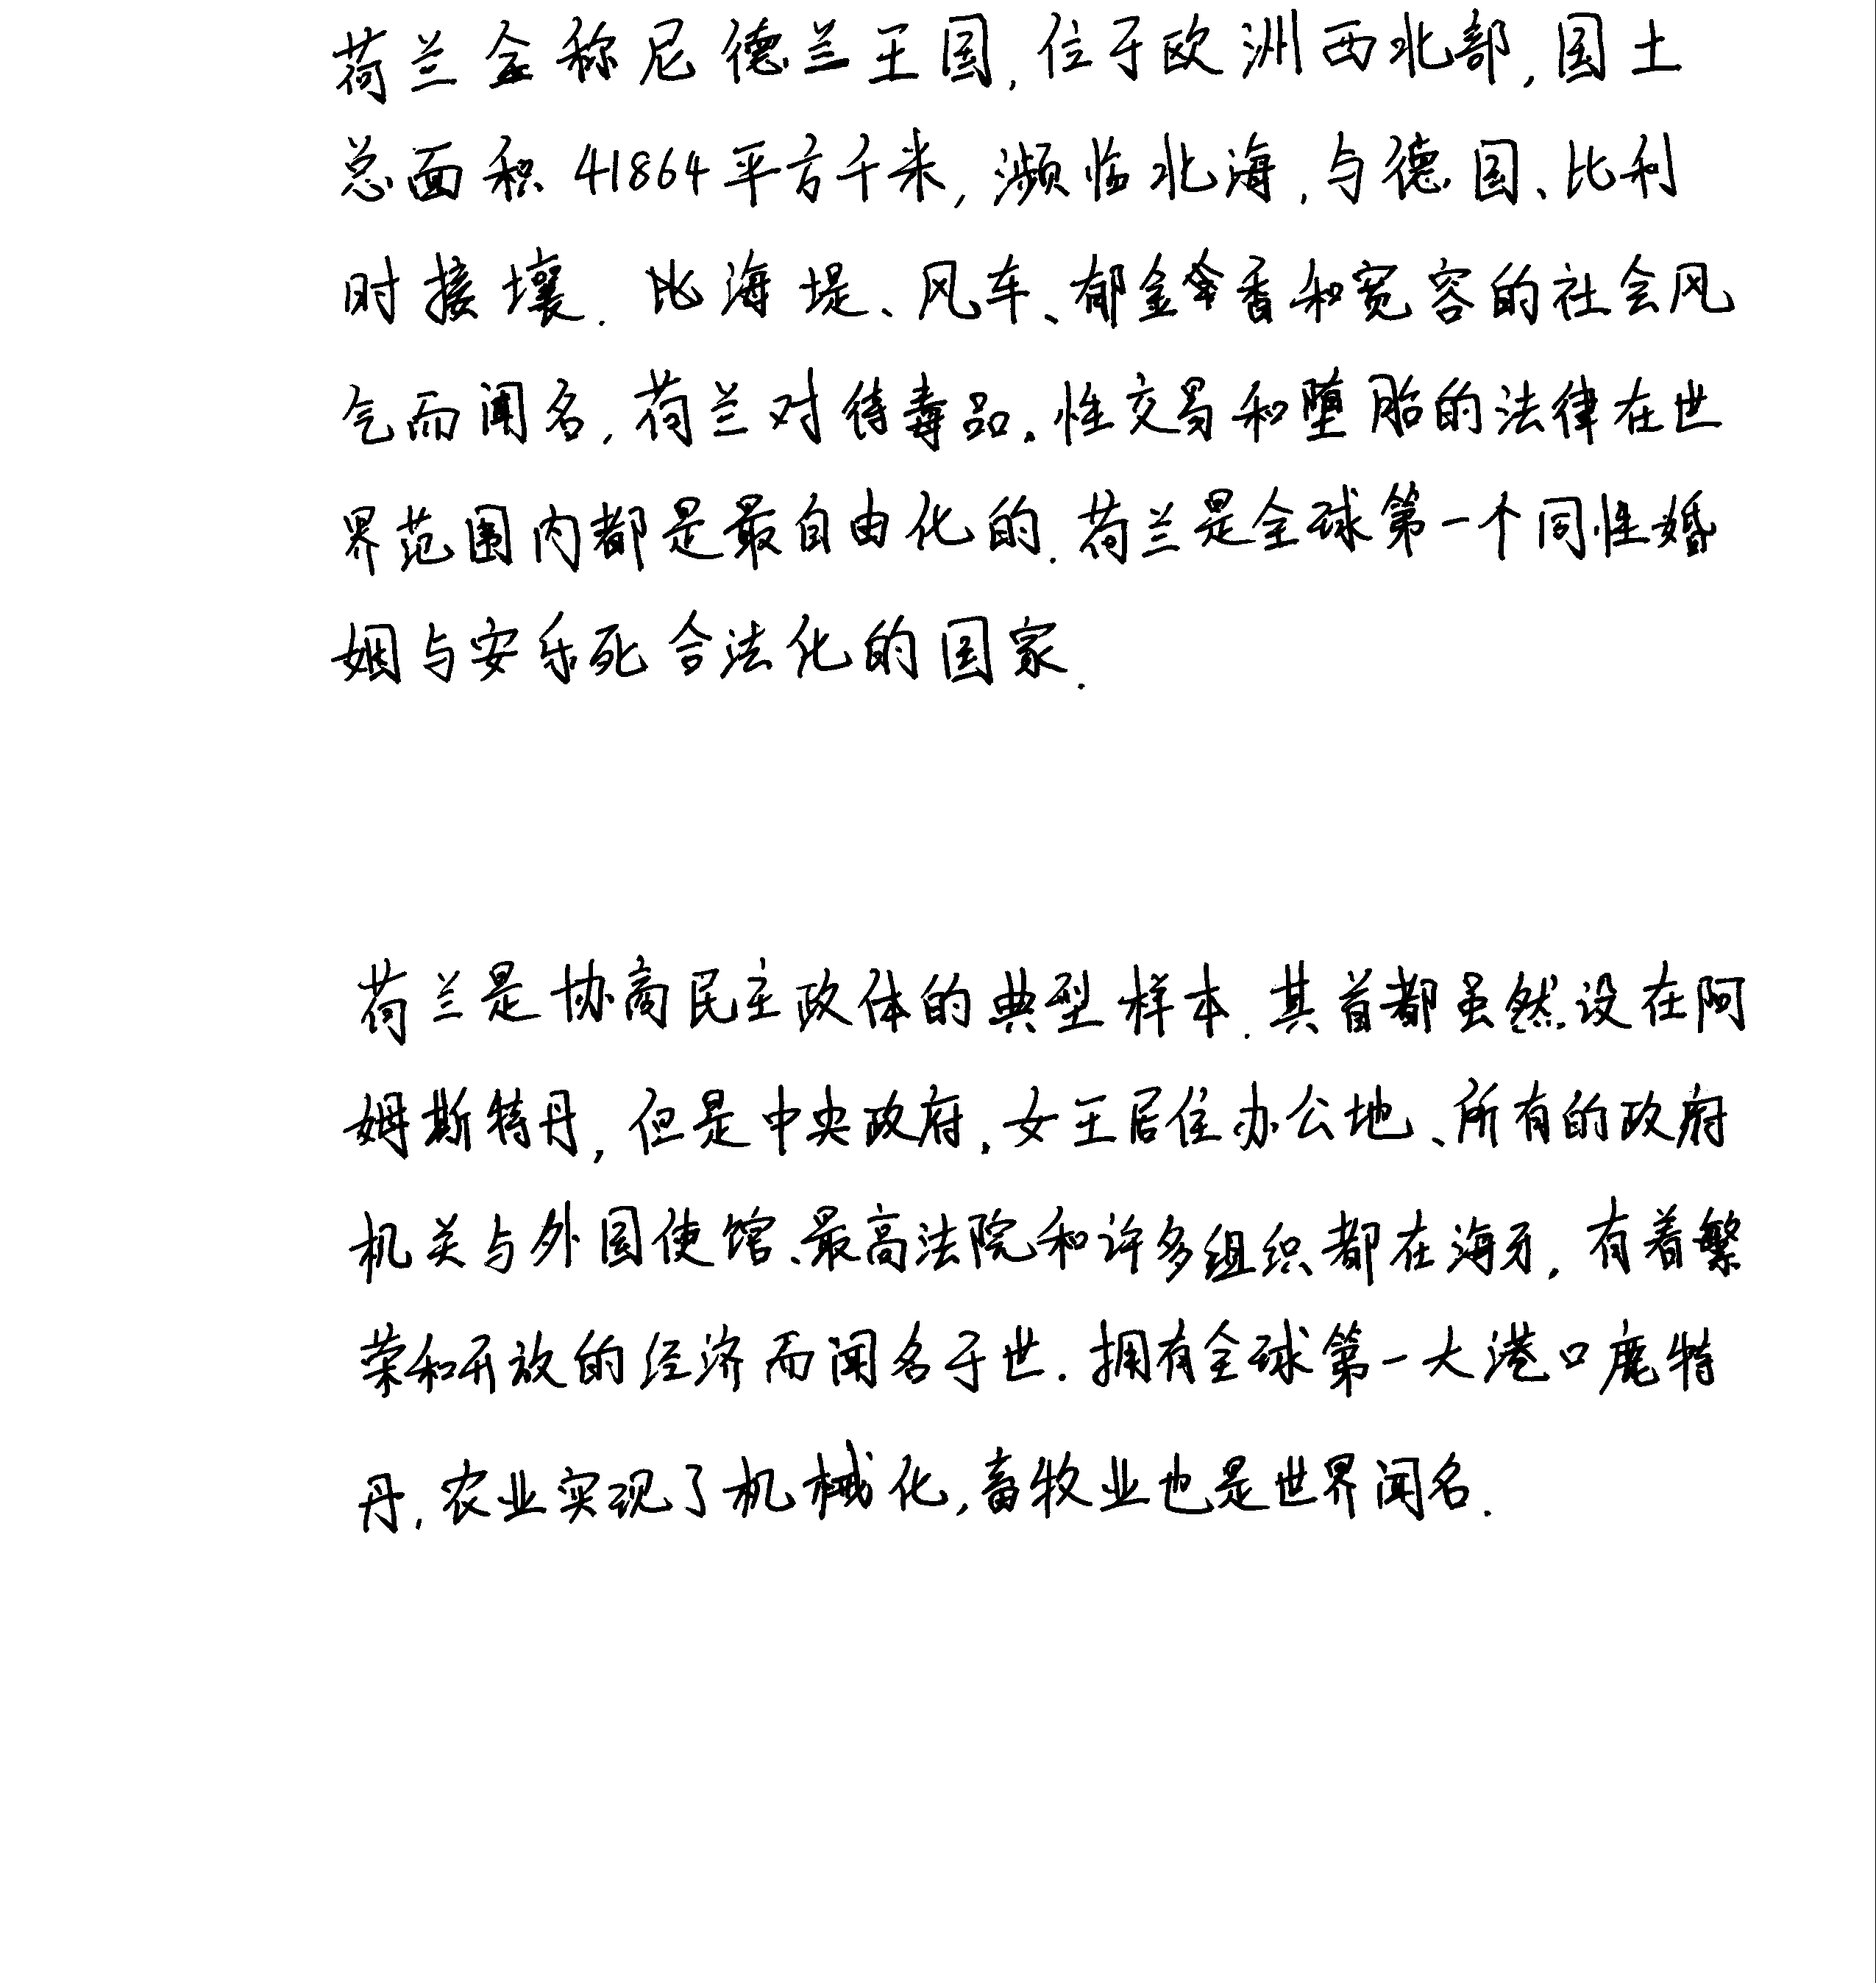 荷兰全称尼德兰王国,位于欧洲西北部,国土
总面积41864平方千米,濒临北海,与德国、比利
时接壤.比海堤、风车、郁金香和宽容的社会风
气而闻名,荷兰对待毒品、性交易和堕胎的法律在世
界范围内都是最自由化的.荷兰是全球第一个同性婚
姻与安乐死合法化的国家.
荷兰是协商民主政体的典型样本.其首都虽然设在阿
姆斯特丹,但是中央政府、女王居住办公地、所有的政府
机关与外国使馆、最高法院和许多组织都在海牙,有着繁
荣和开放的经济而闻名于世.拥有全球第一大港口鹿特
丹,农业实现了机械化,畜牧业也是世界闻名.